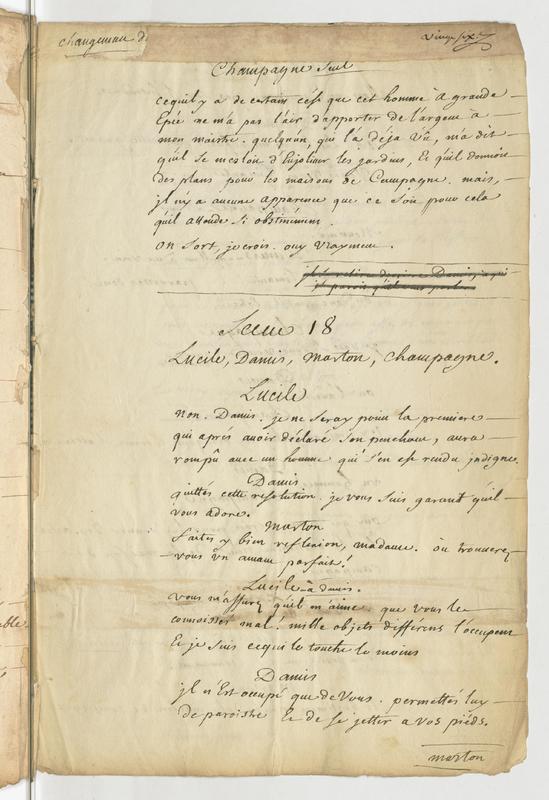 changement d
vingt six.e
Champagne seul
cequil y a de certain c'est que cet homme a grande
Epée ne m'a pas l'air d'apporter de l'argent a
mon maistre. quelqu'un, qui l'a déja vû, m'a dit
qu'il se mesloit d'Enjoliver les jardins, Et qu'il donnoit
des plans pour les maisons de Campagne. mais,
jl n'y a aucune apparence que ce soit pour cela
qu'il attende si obstinément.
on sort, je crois. ouy vrayment.
Scene 18
Lucile, Damis, marton, champagne.
Lucile
non. Damis. je ne seray point la premiere
qui aprés avoir déclaré son penchant, aura
rompû avec un homme qui s'en est rendu indigne.
Damis
quittés cette resolution. je vous suis garant qu'il
vous adore.
marton
faites y bien reflexion, madame. où trouverez
vous un amant parfait!
Lucile à damis.
vous m'assurez qu'il m'aime. que vous le
connoissés mal! mille objets différens l'occupent
Et je suis cequi le touche le moins
Damis
jl n'Est occupé que de Vous. permettés luy
de paroistre Et de se jetter a vos pieds.
marton